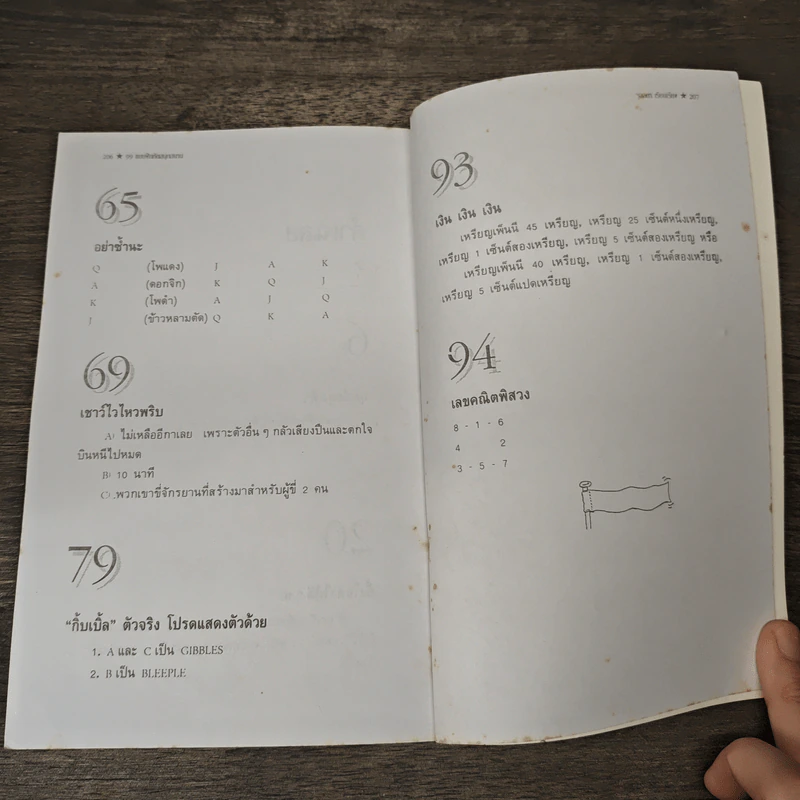 206 ★ 99
65
อย่าซ้ำนะ
Q (โพแดง) J A K
A (ดอกจิก) K Q J
K (โพดำ) A J Q
J (ข้าวหลามตัด) Q K A
69
เชาว์ไวไหวพริบ
A) ไม่เหลืออีกาเลย เพราะตัวอื่น ๆ กลัวเสียงปืนและตกใจ
บินหนีไปหมด
B) 10 นาที
C) พวกเขาขี่จักรยานที่สร้างมาสำหรับผู้ขี่ 2 คน
79
"กิ้บเบิ้ล" ตัวจริง โปรดแสดงตัวด้วย
1. A และ C เป็น GIBBLES
2. B เป็น BLEEPLE
★ 207
93
เงิน เงิน เงิน
เหรียญเพ็นนี 45 เหรียญ, เหรียญ 25 เซ็นต์หนึ่งเหรียญ,
เหรียญ 1 เซ็นต์สองเหรียญ, เหรียญ 5 เซ็นต์สองเหรียญ หรือ
เหรียญเพ็นนี 40 เหรียญ, เหรียญ 1 เซ็นต์สองเหรียญ,
เหรียญ 5 เซ็นต์แปดเหรียญ
94
เลขคณิตพิสวง
8 - 1 - 6
4 2
3 - 5 - 7